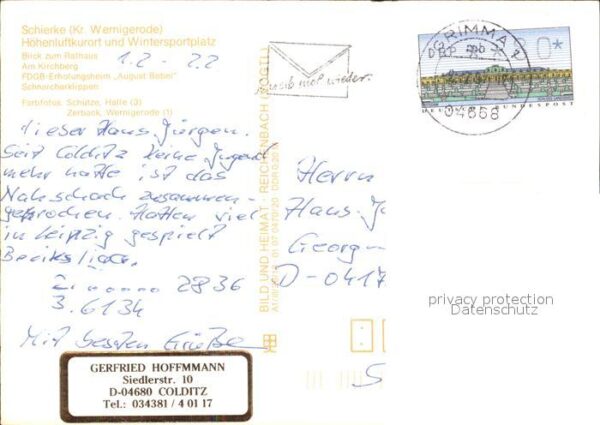 Schierke (Kr. Wernigerode)
Höhenluftkurort und Wintersportplatz
Blick zum Rathaus
Am Kirchberg
FDGB-Erholungsheim „August Bebel"
Schnarcherklippen
Farbfotos Schütze, Halle (3)
Zerback, Wernigerode (1)
1.2 - 2.2
Hans Jürgen.
Seit Colditz keine Jugend
mehr hatte ist das
Nahschach zusammen-
gebrochen. Hatten viel
in Leipzig gespielt
Bezirksliga.
2836
3. 6134
Mit besten Grüßen
GERFRIED HOFFMMANN
Siedlerstr. 10
D-04680 COLDITZ
Tel.: 034381 / 4 01 17
BILD UND HEIMAT · REICHENBACH (VOGTL)
Schreib mal wieder.
GRIMMA
04668
DEUTSCHE BUNDESPOST
Herrn
Hans-Jü
Georg-
D-0417
privacy protection
Datenschutz